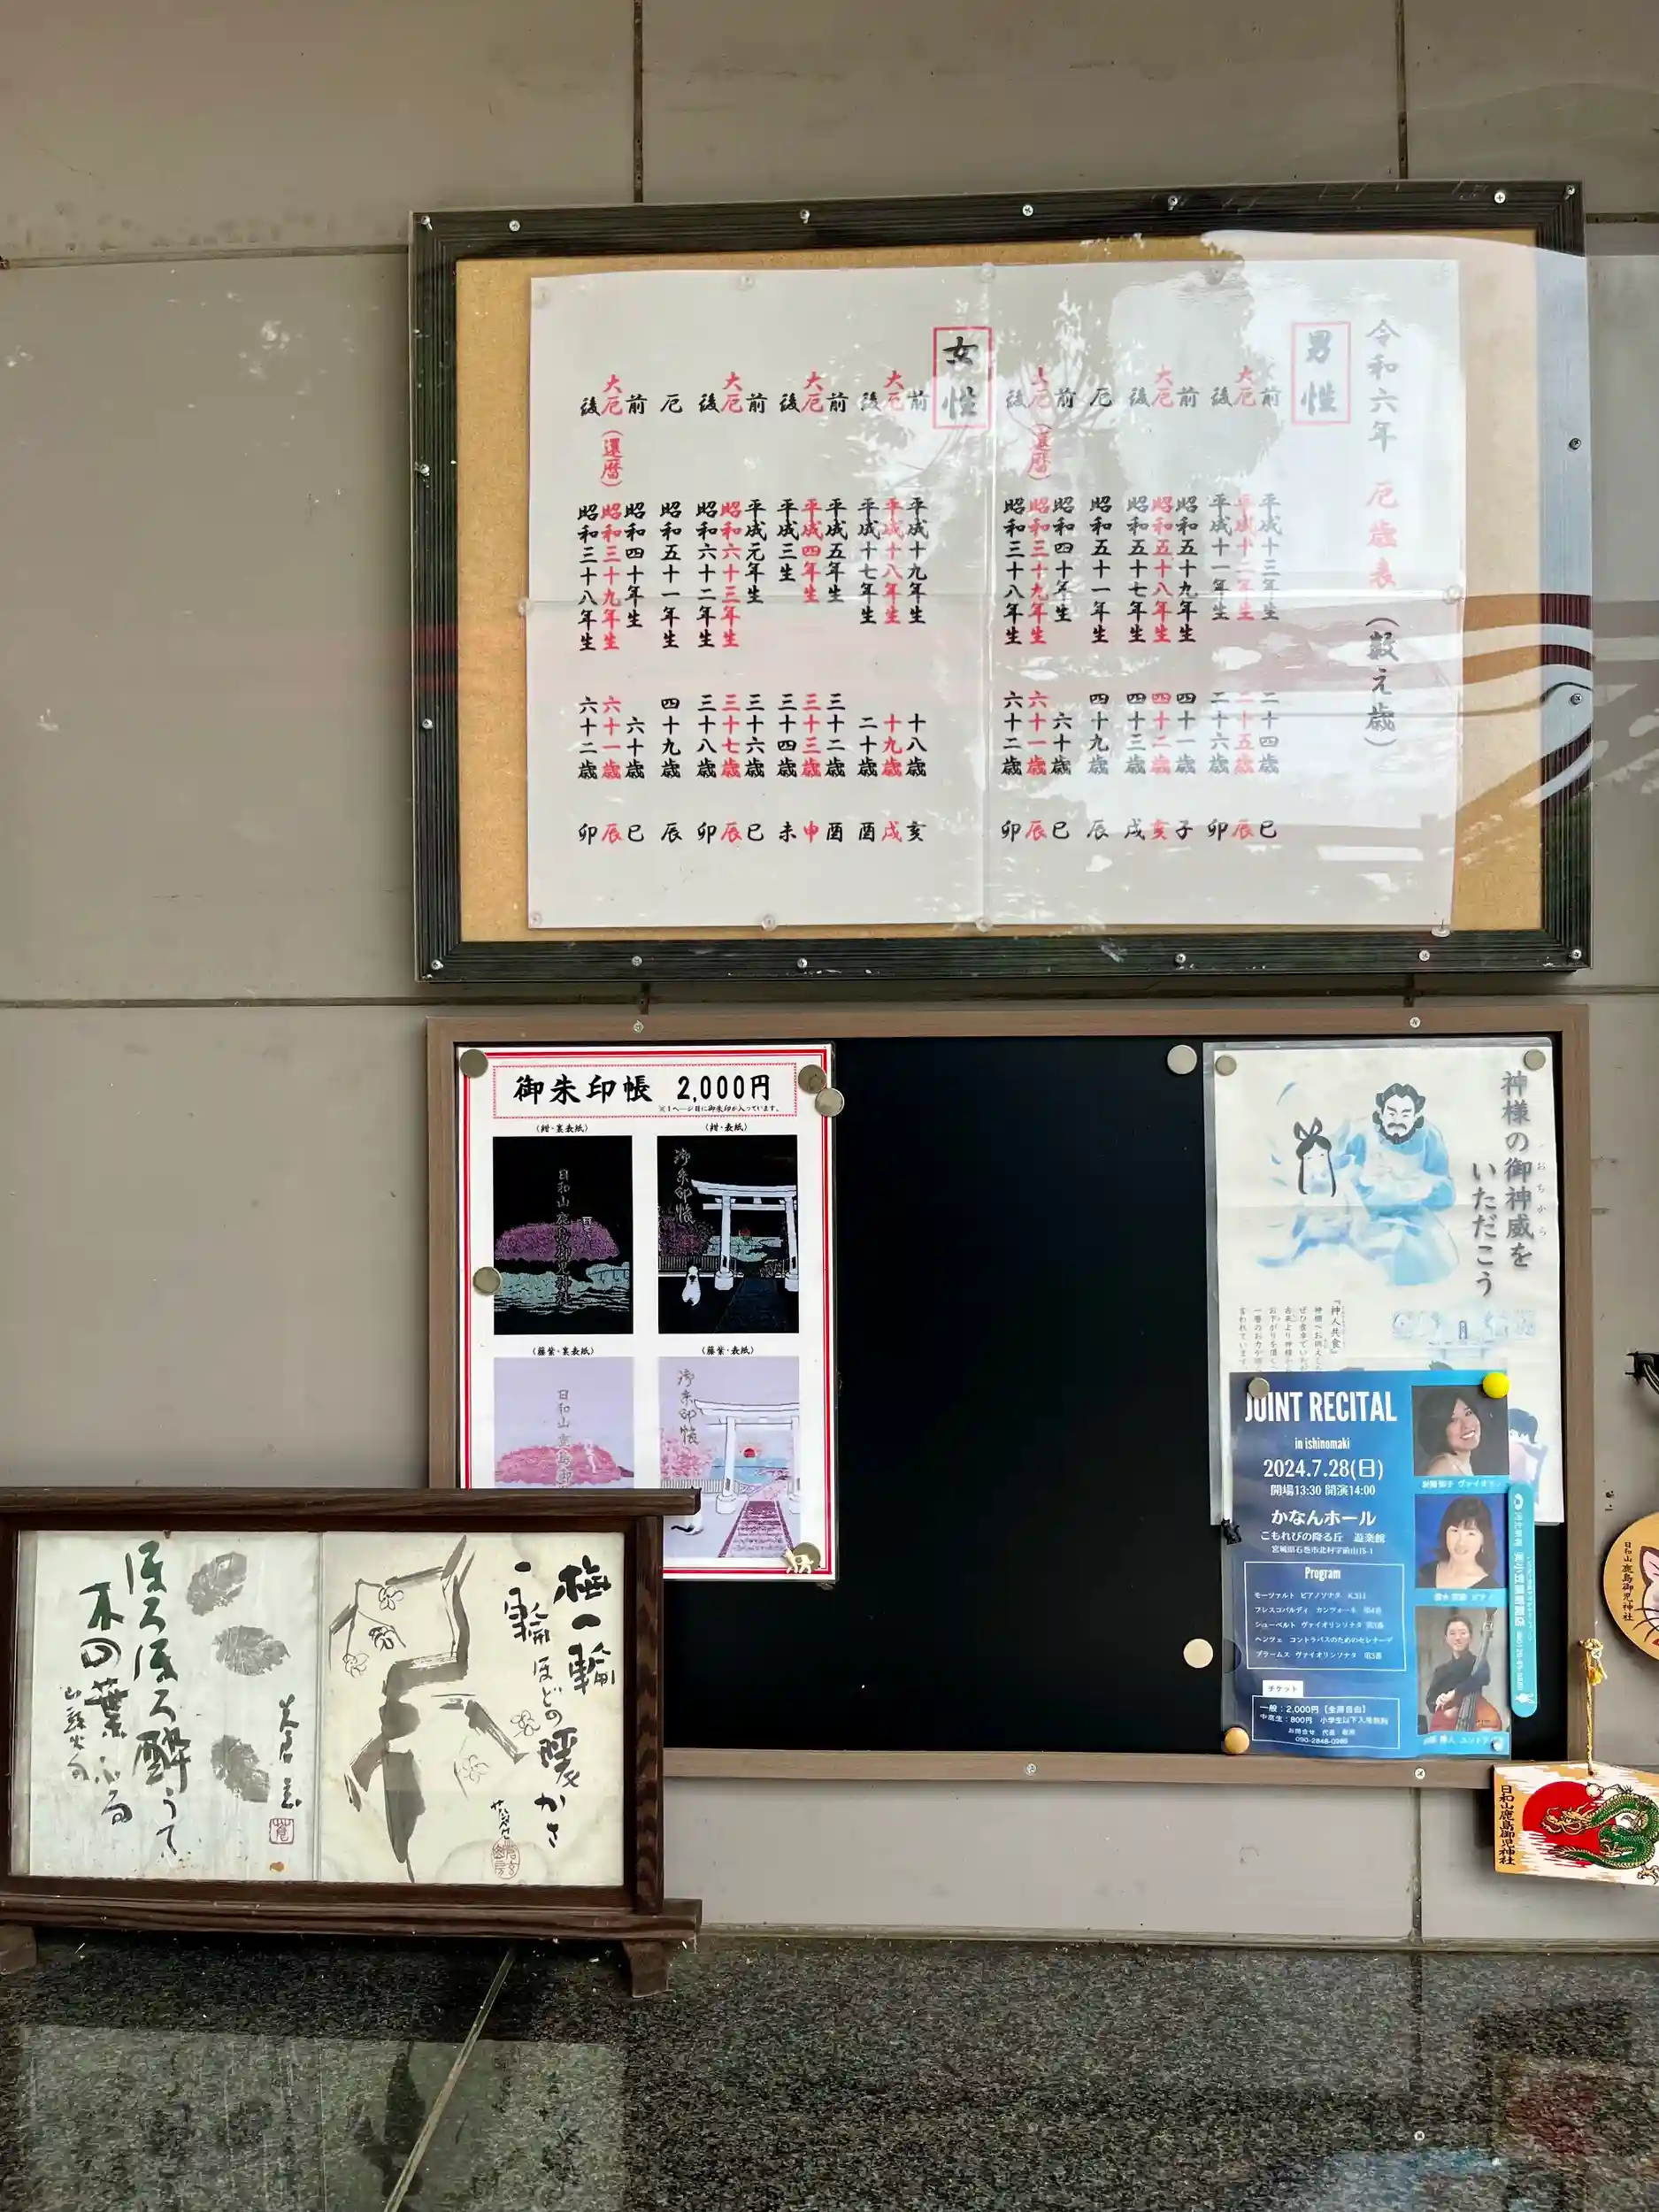 令和六年 厄歳表(数え歳)
男性
前 平成十三年生 二十四歳 巳
大厄 平成十二年生 二十五歳 辰
後 平成十一年生 二十六歳 卯
前 昭和五十九年生 四十一歳 子
大厄 昭和五十八年生 四十二歳 亥
後 昭和五十七年生 四十三歳 戌
厄 昭和五十一年生 四十九歳 辰
前 昭和四十年生 六十歳 巳
大厄(還暦) 昭和三十九年生 六十一歳 辰
後 昭和三十八年生 六十二歳 卯
女性
前 平成十九年生 十八歳 亥
大厄 平成十八年生 十九歳 戌
後 平成十七年生 二十歳 酉
前 平成五年生 三十二歳 酉
大厄 平成四年生 三十三歳 申
後 平成三生 三十四歳 未
前 平成元年生 三十六歳 巳
大厄 昭和六十三年生 三十七歳 辰
後 昭和六十二年生 三十八歳 卯
厄 昭和五十一年生 四十九歳 辰
前 昭和四十年生 六十歳 巳
大厄(還暦) 昭和三十九年生 六十一歳 辰
後 昭和三十八年生 六十二歳 卯
御朱印帳 2,000円
※1ページ目に御朱印が入っています。
(紺・裏表紙)
(紺・表紙)
日和山 鹿島御児神社
御朱印帳
(藤紫・裏表紙)
(藤紫・表紙)
日和山 鹿島御
御朱印帳
神様の御神威を
おちから
いただこう
『神人共食』
JOINT RECITAL
in ishinomaki
2024.7.28(日)
開場13:30 開演14:00
かなんホール
こもれびの降る丘 遊楽館
宮城県石巻市北村字前山15-1
Program
モーツァルト ピアノソナタ K.311
フレスコバルディ カンツォーネ
シューベルト ヴァイオリンソナタ
ヘンツェ コントラバスのためのセレナーデ
ブラームス ヴァイオリンソナタ
チケット
一般:2,000円【全席自由】
中高生:800円 小学生以下入場無料
ヴァイオリン
ピアノ
梅一輪
一輪ほどの暖かさ
ほろほろ酔うて
木の葉ふる
山頭火句
日和山鹿島御児神社
日和山鹿島御児神社